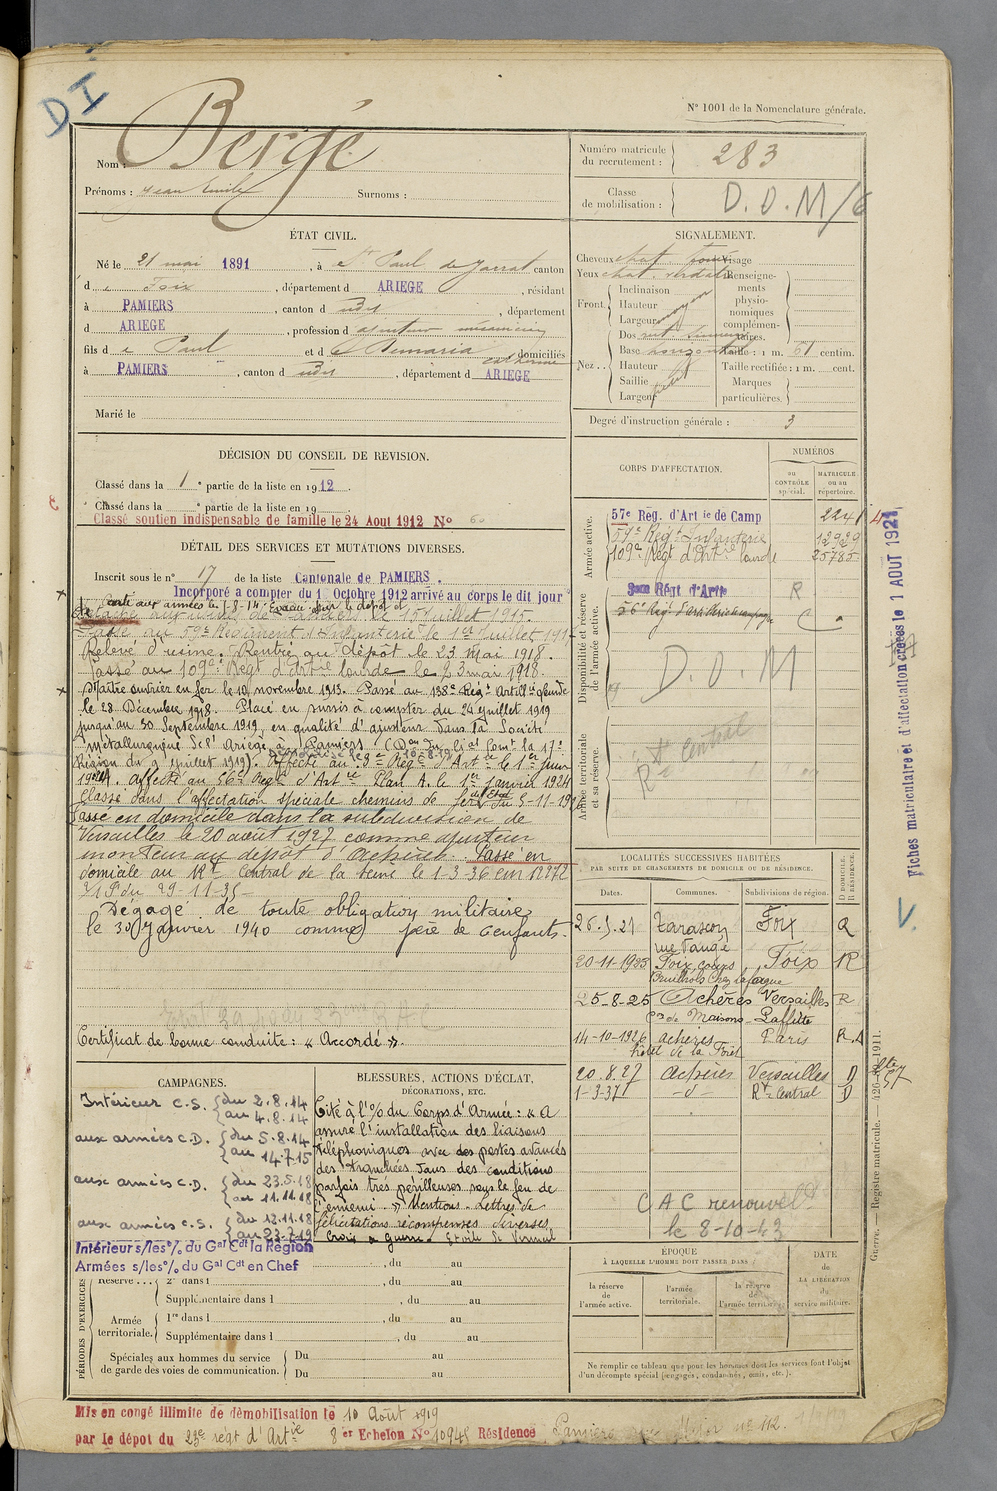 DI
N° 1001 de la Nomenclature générale.
Nom : Bergé
Prénoms : Jean Emile Surnoms :
Numéro matricule du recrutement : 283
Classe de mobilisation : D.O.M/6
ÉTAT CIVIL.
Né le 21 mai 1891, à St Paul de Jarrat canton
d e Foix, département d ARIEGE, résidant
à PAMIERS, canton d udit, département
d ARIEGE, profession d ajusteur mécanicien
fils d e Paul et d e Demaria Catherine domiciliés
à PAMIERS, canton d udit, département d ARIEGE
Marié le
SIGNALEMENT.
Cheveux chat. Visage
Yeux chat. verdâtre Renseignements physionomiques complémentaires.
Front. Inclinaison
Hauteur moyen
Largeur
Nez.. Dos
Base horizontal Taille : 1 m. 61 centim.
Hauteur Taille rectifiée : 1 m. cent.
Saillie Marques
Largeur particulières.
Degré d'instruction générale : 3
DÉCISION DU CONSEIL DE REVISION.
Classé dans la 1e partie de la liste en 1912.
Classé dans la e partie de la liste en 19
Classé soutien indispensable de famille le 24 Aout 1912 N° 60
DÉTAIL DES SERVICES ET MUTATIONS DIVERSES.
Inscrit sous le n° 17 de la liste Cantonale de PAMIERS.
Incorporé a compter du 1 Octobre 1912 arrivé au corps le dit jour
Parti aux armées le 5-8-14. Evacué sur le dépôt et
15 juillet 1915.
Passé au 59e Régiment d'Infanterie le 1er juillet 191
Relevé d'usine. Rentré au dépôt le 23 mai 1918.
Passé au 109e Régt d'Artrie lourde le 23 mai 1918.
Maître ouvrier en fer le 10 novembre 1913. Passé au 138e Régt Artillie lourde
le 28 Décembre 1918. Placé en sursis à compter du 24 juillet 1919
jusqu'au 30 Septembre 1919 en qualité d'ajusteur dans la Société
métallurgique de l'Ariège à Pamiers
Région du 9 juillet 1919). Affecté au 3e Régt d'Artie le 1er juin
1921. Affecté au 56e Régt d'Artie Plan A. le 1er Janvier 1924
Classé dans l'affectation spéciale chemins de fer de l'Etat du 5-11-19
Passé en domicile dans la subdivision de
Versailles le 20 août 1927 comme ajusteur
monteur au dépôt d'Achères. Passé en
domicile au Rt Central de la Seine le 1-3-36
du 29-11-35
Dégagé de toute obligation militaire
le 30 Janvier 1940 comme père de 6 enfants.
Certificat de bonne conduite : « Accordé ».
CORPS D'AFFECTATION.
NUMÉROS
au CONTRÔLE spécial.
MATRICULE ou au répertoire.
Armée active.
57e Rég. d'Art ie de Camp 2241
59e Régt Infanterie 12929
109e Régt d'Artrie lourde 25785
Disponibilité et réserve de l'armée active.
3eme Régt d'Artie R
56e Régt d'artillerie de campagne C
D.O.M
Armée territoriale et sa réserve.
Rt Central
LOCALITÉS SUCCESSIVES HABITÉES
PAR SUITE DE CHANGEMENTS DE DOMICILE OU DE RÉSIDENCE.
Dates. Communes. Subdivisions de région. D DOMICILE. R RÉSIDENCE.
26.5.21 Tarascon Foix R
20-11-1923 Foix, cours Foix R
25-8-25 Achères Versailles R
Con de Maisons-Laffitte
14-10-1926 achères Paris R.A
hôtel de la Forêt
20.8.27 achères Versailles D
1-3-37 -d- Rt Central D
C A C renouvelé
le 8-10-43
CAMPAGNES.
Intérieur C.S. { du 2.8.14
au 4.8.14
aux armées C.D. { du 5.8.14
au 14.7.15
aux armées C.D. { du 23.5.18
au 11.11.18
aux armées C.S. { du 12.11.18
au 23.7.19
Intérieur s/les o/. du Gal Cdt la Région
Armées s/les o/. du Gal Cdt en Chef
BLESSURES, ACTIONS D'ÉCLAT,
DÉCORATIONS, ETC.
Cité à l'% du Corps d'Armée : « A
assuré l'installation des liaisons
téléphoniques avec des postes avancés
des tranchées dans des conditions
parfois très périlleuses sous le feu de
l'ennemi. » Mentions. Lettres de
félicitations récompenses diverses
Croix de Guerre. Etoile de Vermeil
PÉRIODES D'EXERCICES
Réserve... 2e dans l , du au
Supplémentaire dans l , du au
Armée territoriale. 1re dans l , du au
Supplémentaire dans l , du au
Spéciales aux hommes du service Du au
de garde des voies de communication. Du au
ÉPOQUE
À LAQUELLE L'HOMME DOIT PASSER DANS
la réserve de l'armée active.
l'armée territoriale.
la réserve de l'armée territoriale.
DATE DE LA LIBÉRATION du service militaire.
Ne remplir ce tableau que pour les hommes dont les services font l'objet
d'un décompte spécial (engagés, condamnés, omis, etc.).
Mis en congé illimité de démobilisation le 10 Août 1919
par le dépot du 23e régt d'Artie 8 er Echelon N° 10945 Résidence Pamiers n° 112.
Fiches matriculaire et d'affectation créées le 1 AOUT 1921
V.
Guerre. — Registre matricule. — 426-1911.